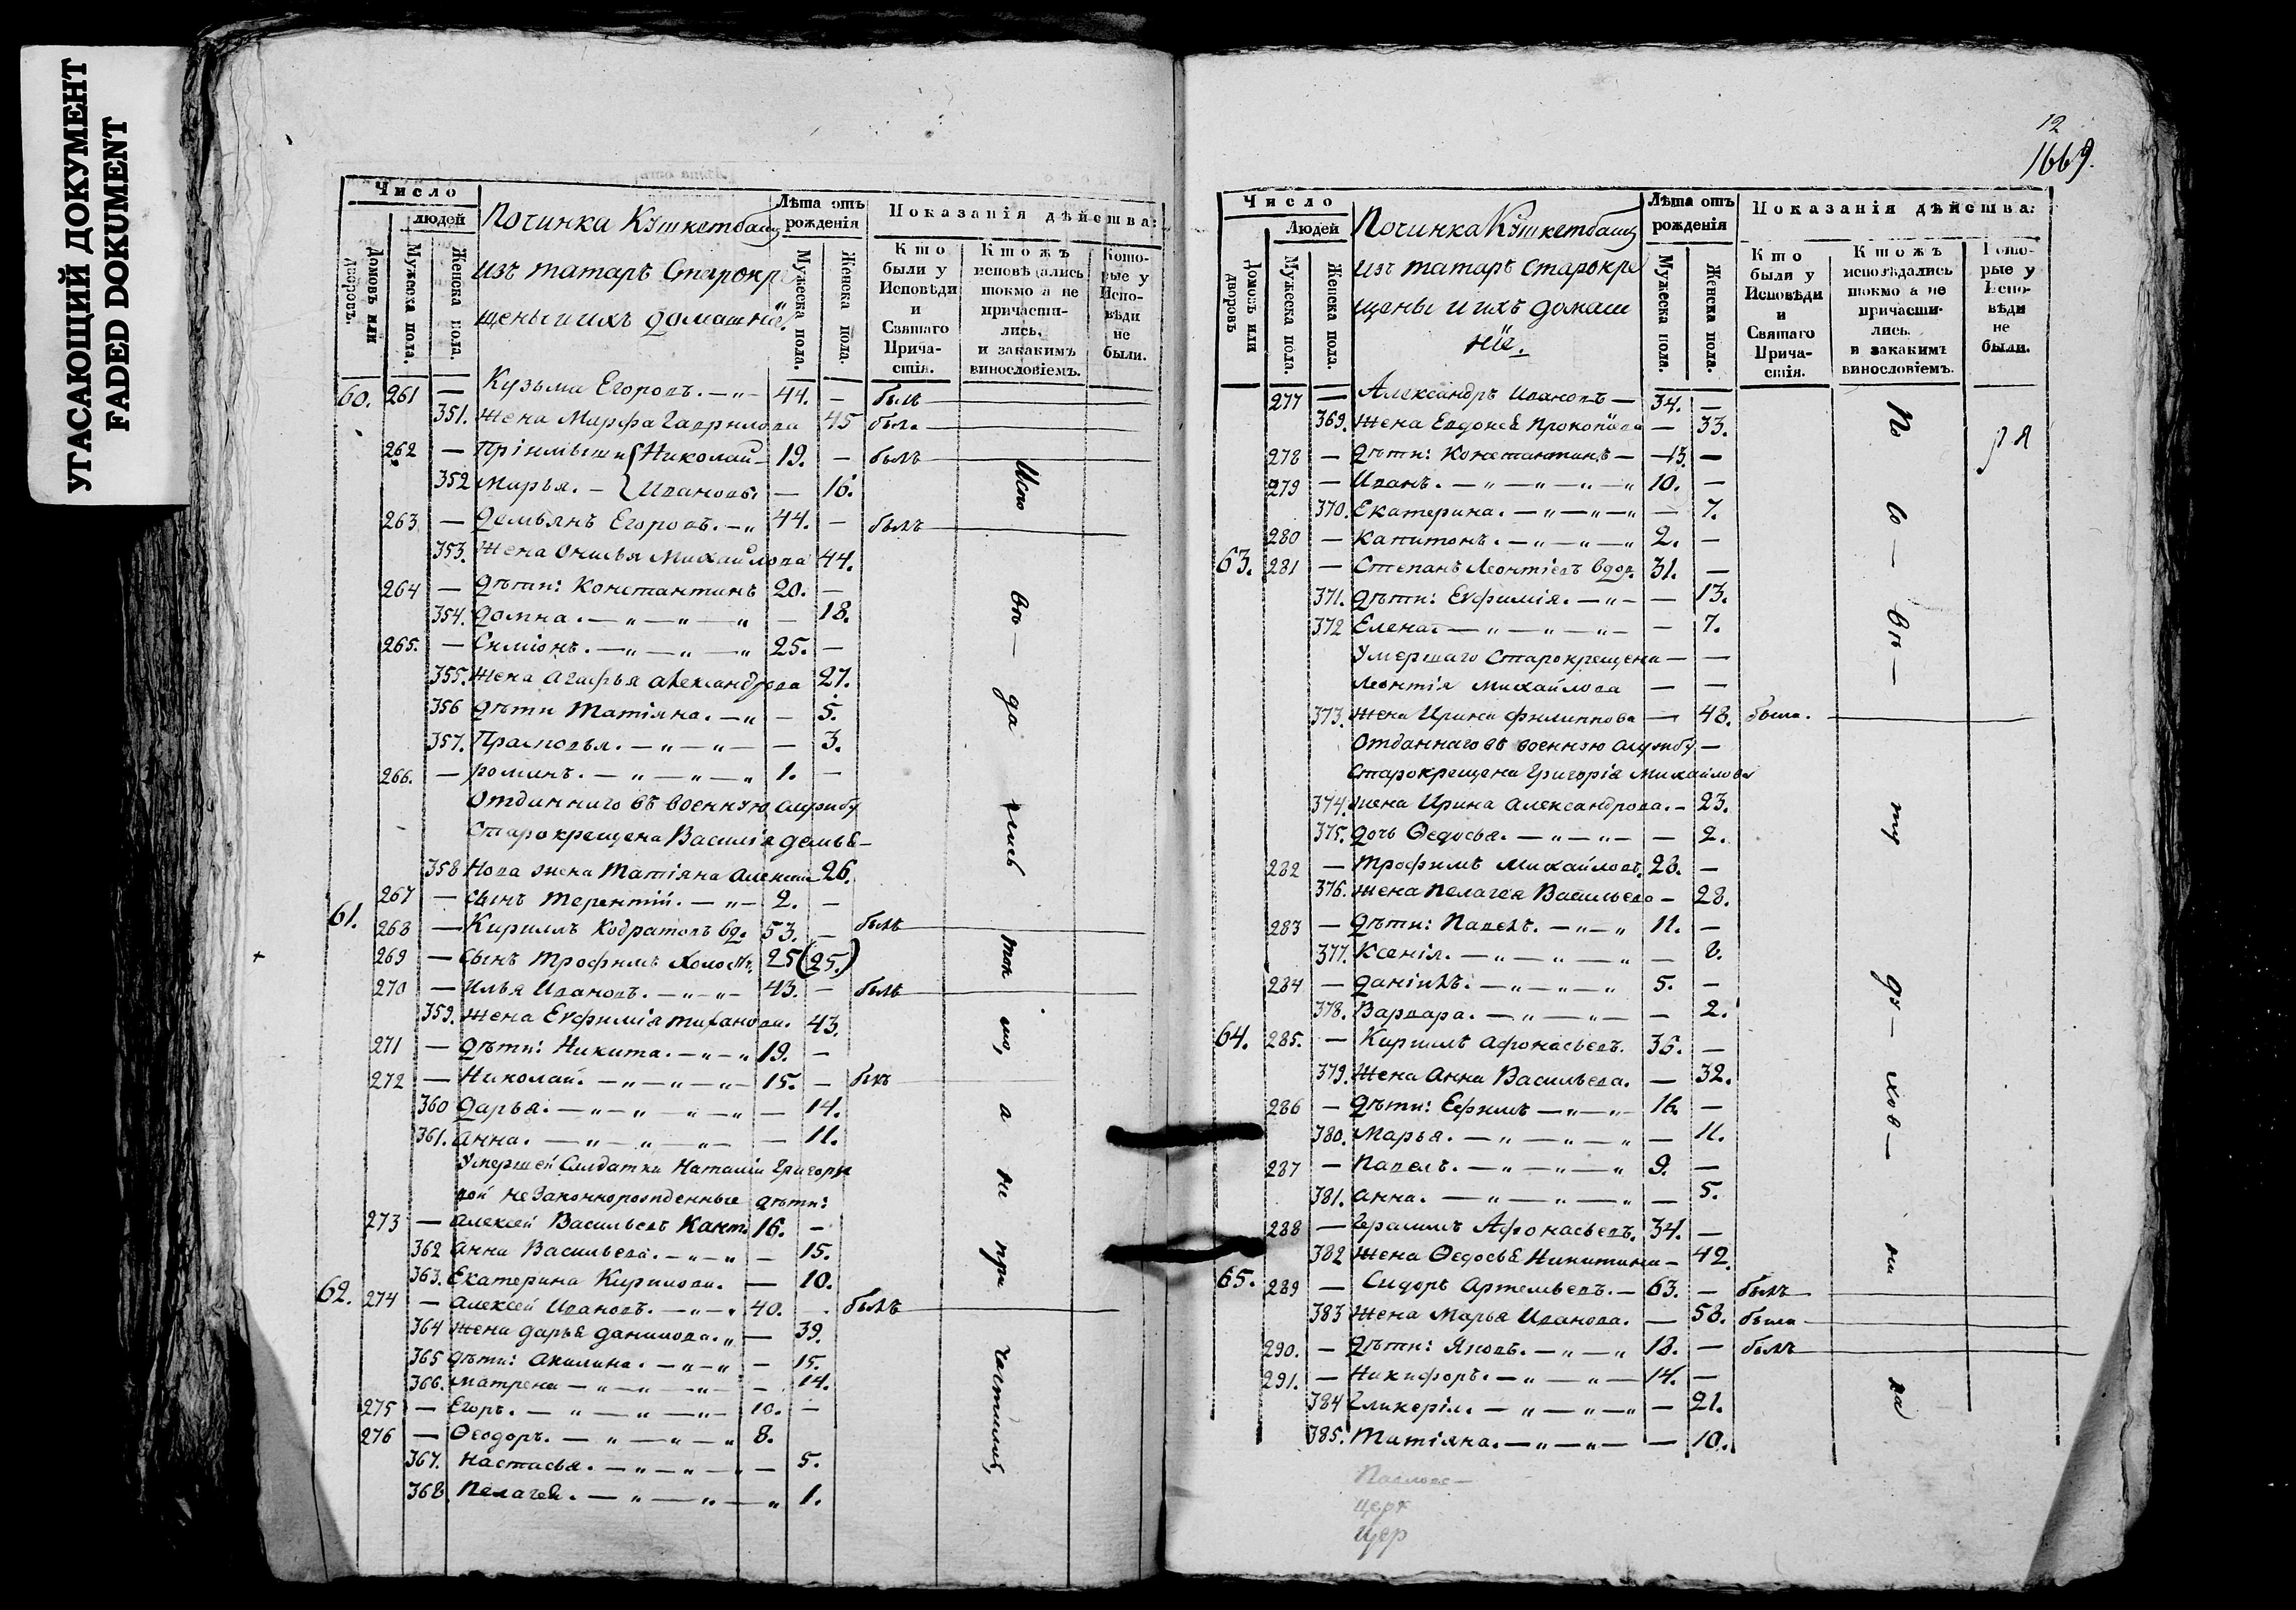 УГАСАЮЩИЙ ДОКУМЕНТ
FADED DOKUMENT
Число
людей
Домовъ или дворовъ.
Мужеска пола.
Женска пола.
Починка Кушкетбашъ
изъ татаръ Старокре
щены и ихъ домашніе.
Лѣта отъ рожденія
Мужеска пола.
Женска пола.
Показанія дѣйства:
Кто были у Исповѣди и Святаго Причастія.
Кто жъ исповѣдались токмо а не причастились, и закакимъ винословіемъ.
Которые у Исповѣди не были.
60. 261 — Кузьма Егоровъ. — „ — 44. — былъ
351. жена Марфа Гаврилова 45 была
262 — Пріимыши { Николай — 19. — былъ
352 Марья. — { Ивановы. — 16.
263 — Демьянъ Егоровъ. — „ 44. — былъ
353. жена Онисья Михайлова 44.
264 — дѣти: Константинъ 20. —
354. Домна. — „ — „ — „ — 18.
265. — Симіонъ. — „ — „ — „ 25. —
355. жена Агафья Александрова 27.
356 дѣти Татіяна. — „ — 5.
357. Прасковья. — „ — „ — — 3.
266. — Романъ. — „ — „ — „ 1. —
Отданнаго въ военную службу
Старокрещена Василія Демья-
358 нова жена Татіяна Алексѣи 26.
267 — сынъ Терентій. — „ — 2. —
61. 268 — Кирилъ Кодратовъ вд. 53. — былъ
269 — сынъ Трофимъ холостъ. 25 (25.)
270 — Илья Ивановъ. — „ — „ — 43. — былъ
359. жена Евфимія 43.
271 — дѣти: Никита. — „ — „ 19. —
272 — Николай. — „ — „ — „ — 15. — былъ
360 Дарья. — „ — „ — „ — „ — 14.
361. Анна. — „ — „ — „ — — 11.
Умершей Солдатки Наталіи Григорье
вой незаконнорожденные дѣти:
273 — Алексѣй Васильевъ Кант. 16. —
362 Анна Васильева. — „ — „ — 15.
363. Екатерина Кирилова. — 10.
62. 274 — Алексѣй Ивановъ. — „ — „ 40. — былъ
364 жена Дарья Данилова. „ — 39.
365 дѣти: Акилина. — „ — „ — 15.
366. Матрена — „ — „ — „ — — 14.
275 — Егоръ. — „ — „ — „ — 10. —
276 — Ѳеодоръ. — „ — „ — „ 8.
367. Настасья. — „ — „ — „ — 5.
368. Пелагея. — „ — „ — „ 1.
Исповѣдались токмо, а не причастились,
12
1669.
Число
Людей
Домовъ или дворовъ
Мужеска пола.
Женска пола.
Починка Кушкетбашъ
изъ татаръ старокре
щены и ихъ домаш
ніе.
Лѣта отъ рожденія
Мужеска пола.
Женска пола.
Показанія дѣйства:
Кто были у Исповѣди и Святаго Причастія.
Кто жъ исповѣдались токмо а не причастились. и закакимъ винословіемъ.
Которые у Исповѣди не были.
277 — Александръ Ивановъ — 34. —
369. жена Евдокея Прокопіева — 33.
278 — дѣти: Константинъ — 13. —
279 — Иванъ. — „ — „ — „ — „ 10. —
370. Екатерина. — „ — „ — „ — 7.
280 — Капитонъ. — „ — „ — „ 2. —
63. 281 — Степанъ Леонтіевъ вдов. 31. —
371. дѣти: Евфимія. — „ — — 13.
372 Елена. — „ — „ — „ — — 7.
Умершаго Старокрещена — —
Леонтія Михайлова — —
373. жена Ирина Филиппова — 48. была.
Отданнаго въ военную службу —
старокрещена Григорія Михайлова
374. жена Ирина Александрова. — 23.
375. дочь Ѳедосья. — „ — „ — — 2.
282 — Трофимъ Михайловъ. 28. —
376. жена Пелагея Васильева — 28.
283 — дѣти: Павелъ. — „ — „ 11. —
377. Ксенія. — „ — „ — „ — „ — 8.
284 — Даніилъ. — „ — „ — „ 5. —
378. Варвара. — „ — „ — — 2.
64. 285. — Кирилъ Афонасьевъ. 36. —
379. жена Анна Васильева. — 32.
286 — дѣти: Ефимъ — „ — „ — 16. —
380. Марья. — „ — „ — „ — „ — 11.
287 — Павелъ. — „ — „ — „ 9. —
381. Анна. — „ — „ — „ — 5.
288 — Герасимъ Афонасьевъ. 34. —
382 жена Ѳедосья Никитина — 42.
65. 289 — Сидоръ Артемьевъ. — 63. — былъ
383 жена Марья Иванова. — 58. была
290. — дѣти: Яковъ. — „ — „ 18. — былъ
291. — Никифоръ. — „ — „ — 14. —
384 Гликерія. — „ — „ — „ — 21.
385. Татіяна. — „ — „ — — 10.
По
ду-
хов-
ня
церк
цер